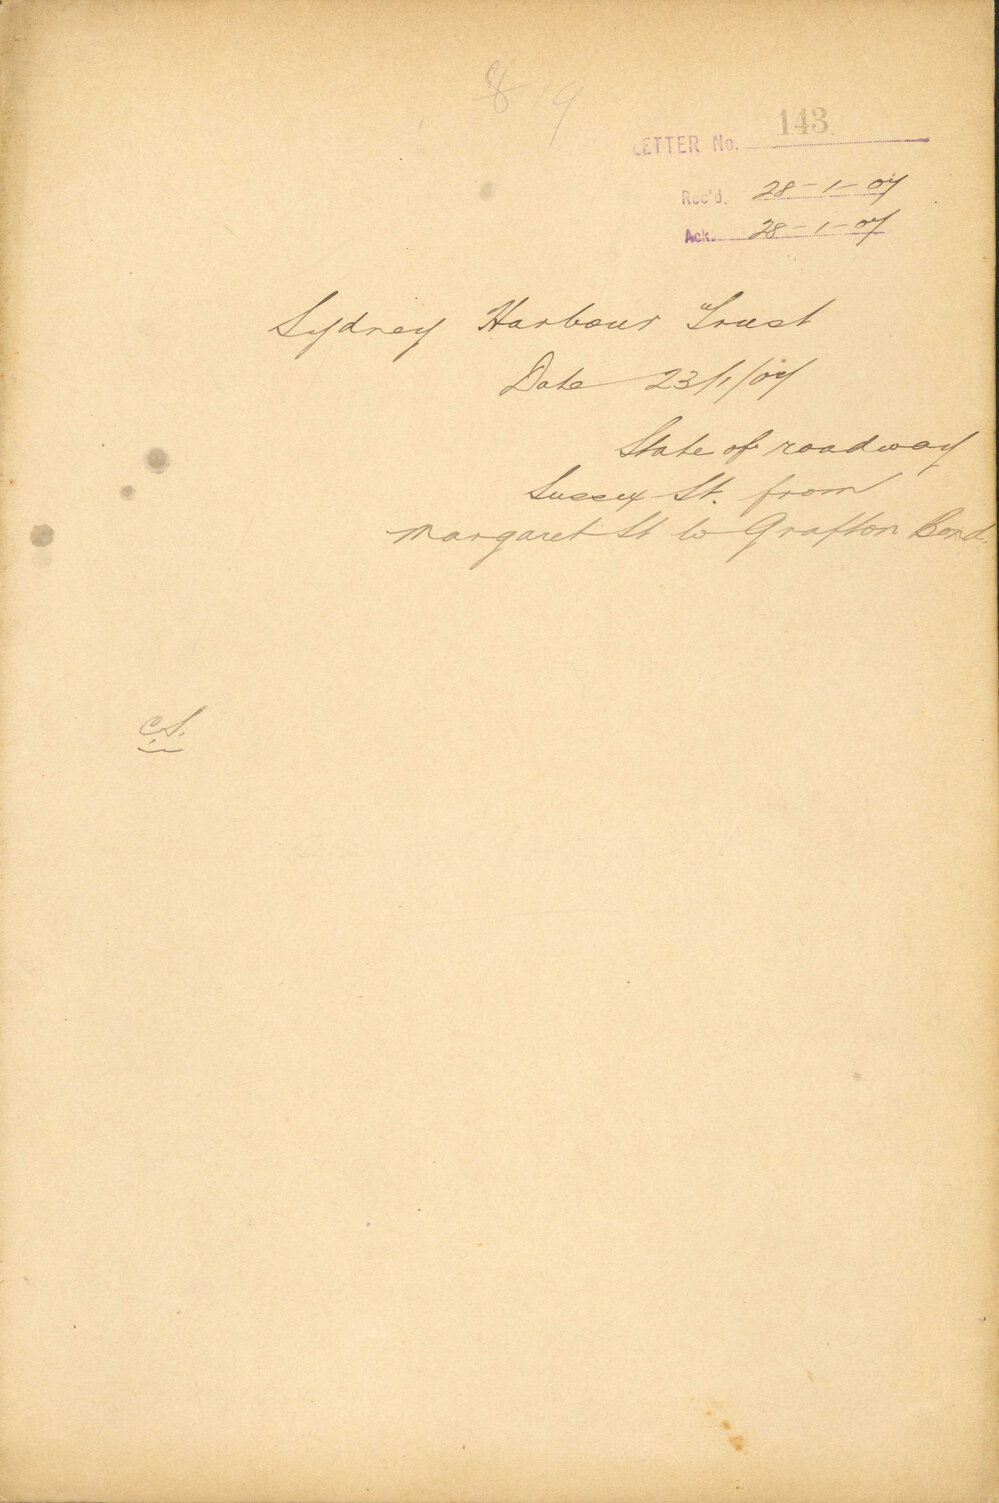 819
LETTER No. 143
Rec'd. 28-1-07
Ack. 28-1-07
Sydney Harbour Trust
Date 23/1/07
State of roadway
Sussex St. from
Margaret St to Grafton Bond.
C.S.